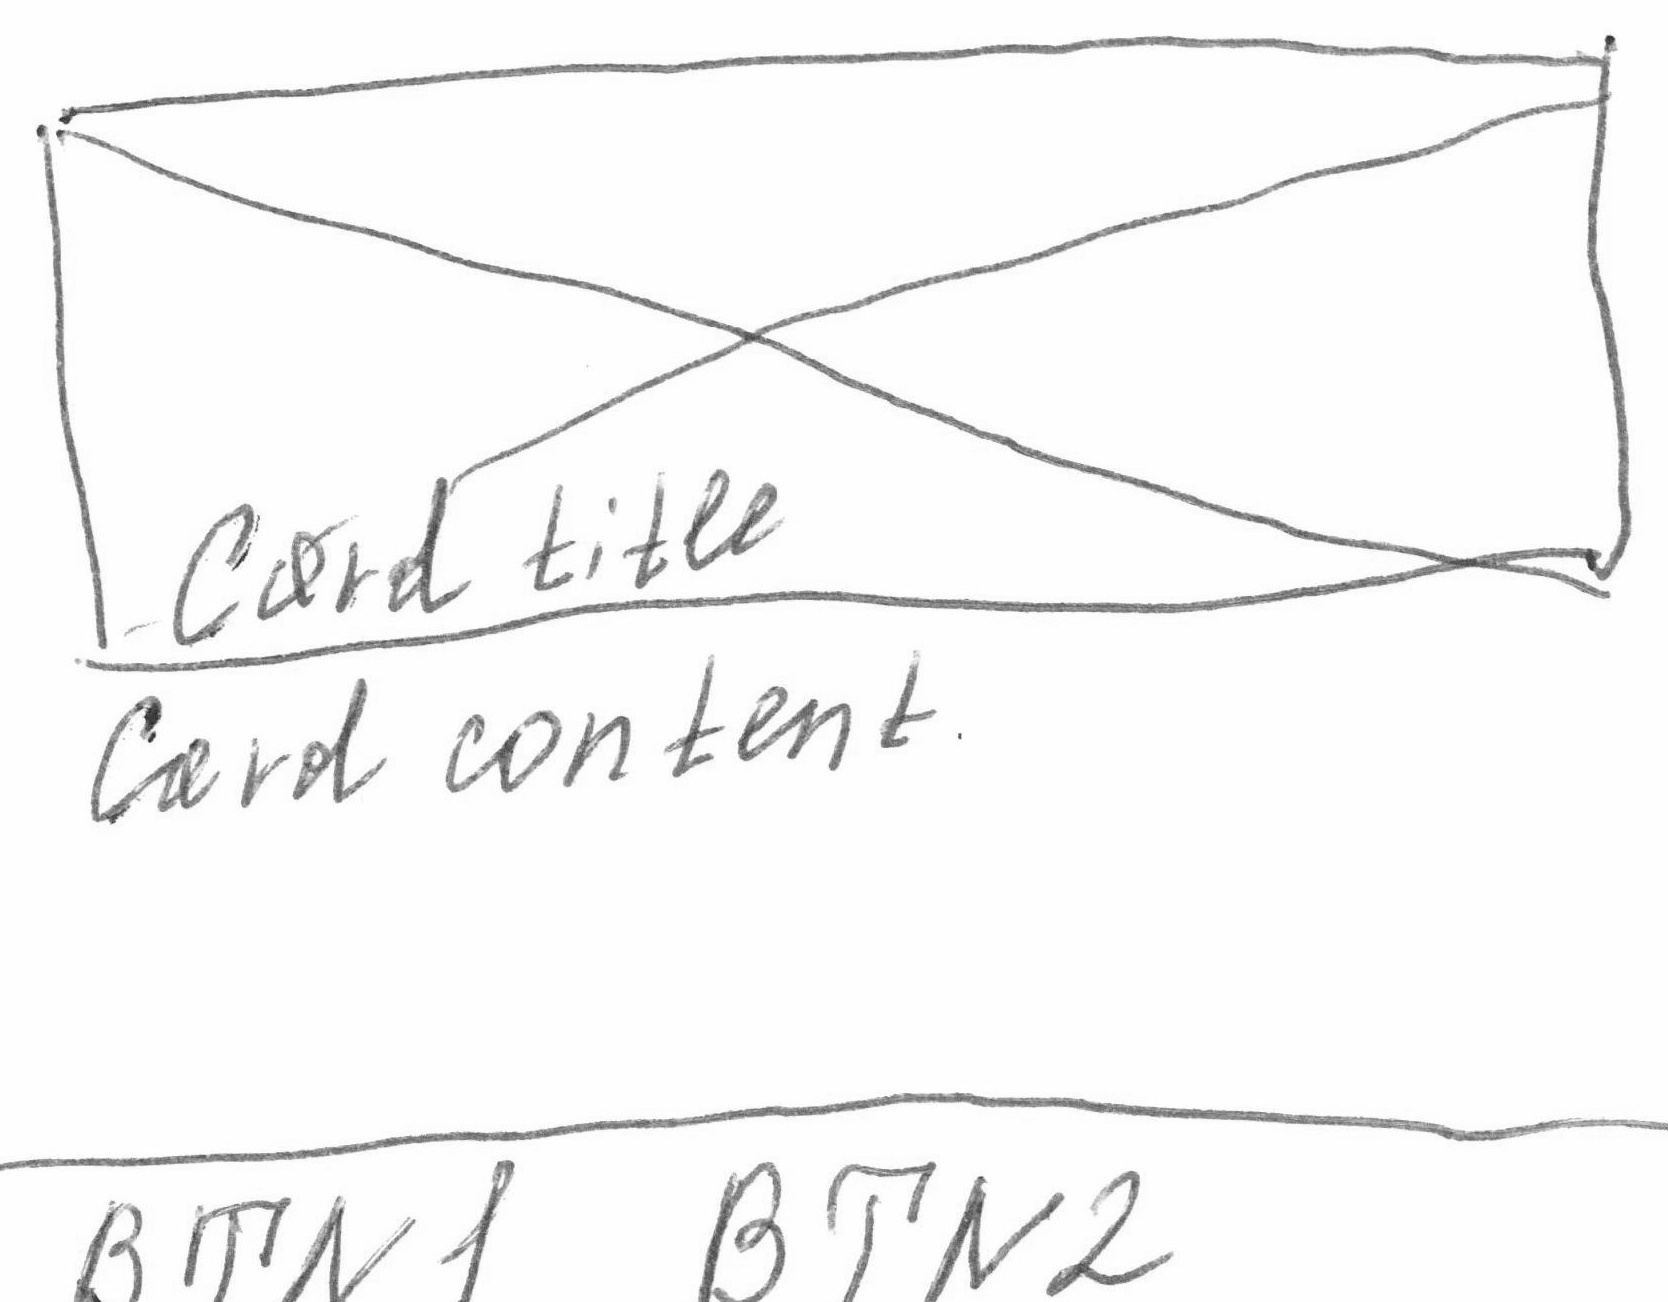 Card title
Card content.
BTN1 BTN2